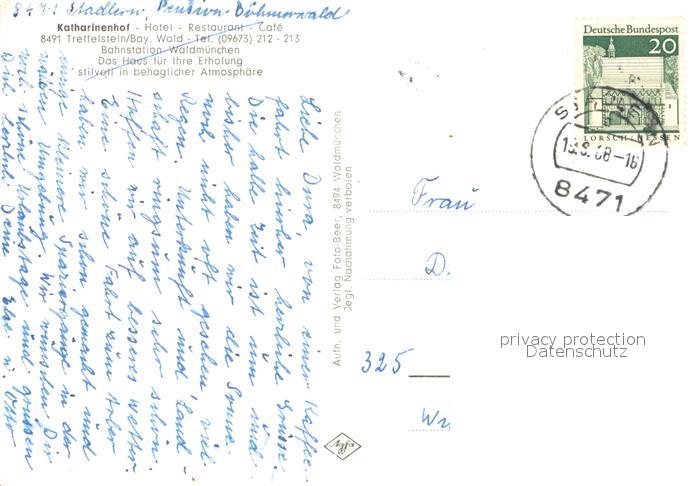 8471 Stadlern, Pension Böhmerwald
Katharinenhof - Hotel - Restaurant - Café
8491 Treffelstein/Bay. Wald - Tel. (09673) 212 - 213
Bahnstation Waldmünchen
Das Haus für Ihre Erholung
stilvoll in behaglicher Atmosphäre
Liebe Dora, von einer Kaffee-
fahrt hierher herzliche Grüsse.
Die halbe Zeit ist um und
bisher haben wir die Sonne
noch nicht oft gesehen, viel
Regen. Unterkunft und Land-
schaft ringsum sehr schön
Hoffen wir auf besseres Wetter
Eine schöne Fahrt zum
haben wir schon gemacht und
einige kleinere Spaziergänge in der
Umgebung. Wir wünschen Dir
schöne Urlaubstage und grüssen
Dich herzlich Deine Else u. Otto
Aufn. und Verlag Foto-Beer, 8494 Waldmünchen
Jegl. Nachahmung verboten
Agfa
Deutsche Bundespost
20
LORSCH/HESSEN
8471
Frau
D.
325
privacy protection
Datenschutz